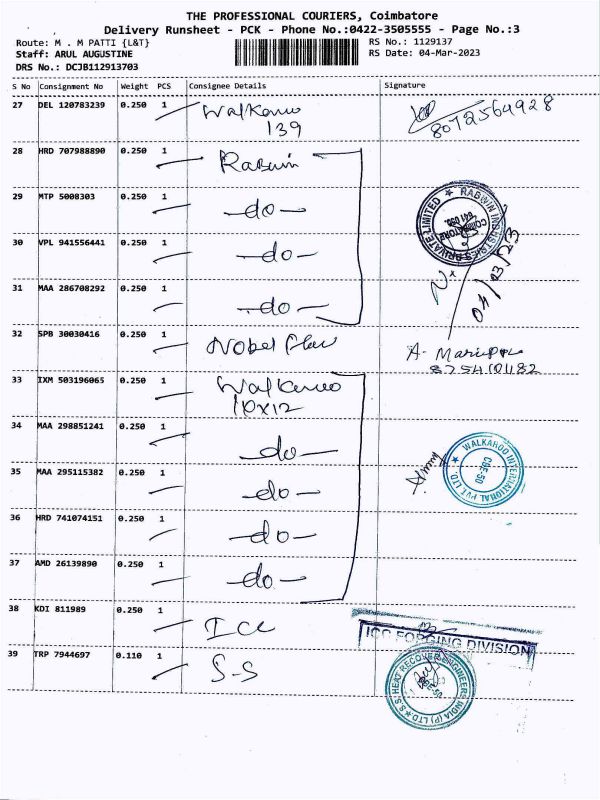 THE PROFESSIONAL COURIERS, Coimbatore
Delivery Runsheet - PCK - Phone No.:0422-3505555 - Page No.:3
Route: M . M PATTI {L&T}
RS No.: 1129137
Staff: ARUL AUGUSTINE
RS Date: 04-Mar-2023
DRS No.: DCJB112913703
S No Consignment No Weight PCS Consignee Details Signature
27 DEL 120783239 0.250 1 Walkaroo
139
8072564928
28 HRD 707988890 0.250 1 Rabwin
29 MTP 5008303 0.250 1 -do-
RABWIN INDUSTRIES PRIVATE LIMITED
COIMBATORE
30 VPL 941556441 0.250 1 -do-
04/03/23
31 MAA 286708292 0.250 1 -do-
32 SPB 30030416 0.250 1 Nobel
A.
33 IXM 503196065 0.250 1 Walkaroo
10x12
34 MAA 298851241 0.250 1 -do-
WALKAROO INTERNATIONAL PVT LTD.
CBE-50
35 MAA 295115382 0.250 1 -do-
36 HRD 741074151 0.250 1 -do-
37 AMD 26139890 0.250 1 -do-
38 KDI 811989 0.250 1 ICC
ICC FORGING DIVISION
39 TRP 7944697 0.110 1 S-S
S.S HEAT RECOVER ENGINEERS INDIA (P) LTD